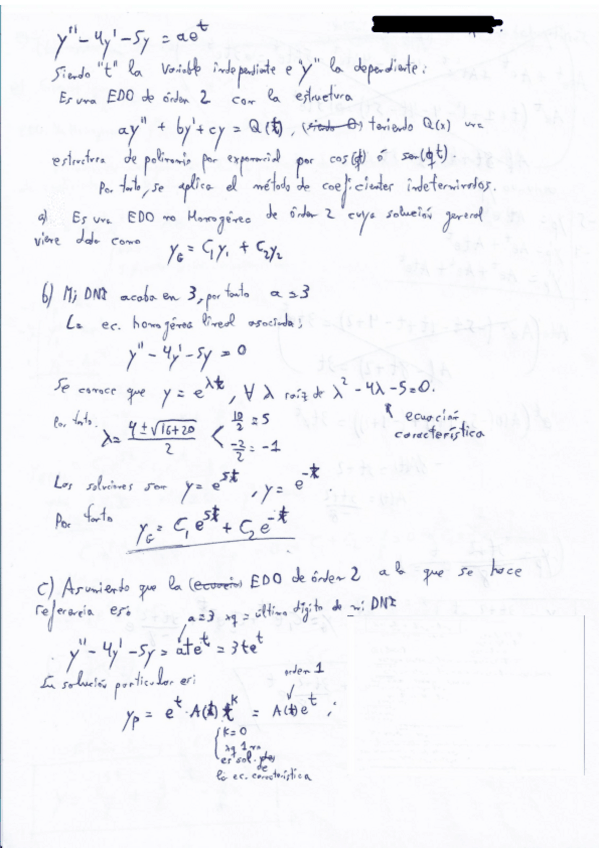 y'' - 4y' - 5y = ae^t
Siendo "t" la variable independiente e "y" la dependiente:
Es una EDO de orden 2 con la estructura
ay'' + by' + cy = Q(t), teniendo Q(x) una
estructura de polinomio por exponencial por cos(qt) ó sen(qt).
Por tanto, se aplica el método de coeficientes indeterminados.
a) Es una EDO no Homogénea de orden 2 cuya solución general
viene dada como
y_G = C_1y_1 + C_2y_2
b) Mi DNI acaba en 3, por tanto a = 3
La ec. homogénea lineal asociada:
y'' - 4y' - 5y = 0
Se conoce que y = e^{λt}, ∀ λ raíz de λ² - 4λ - 5 = 0.
Por tanto. λ = (4 ± √(16+20))/2 < 10/2 = 5 ; -2/2 = -1
ecuación
característica
Las soluciones son y = e^{5t}, y = e^{-t}.
Por tanto y_G = C_1e^{5t} + C_2e^{-t}
c) Asumiendo que la (ecuación) EDO de órden 2 a la que se hace
referencia es:
a = 3 xq = último dígito de mi DNI
y'' - 4y' - 5y = ate^t = 3te^t
La solución particular es:
orden 1
y_p = e^t · A(t) t^k = A(t)e^t ;
k = 0
xq 1 no
es sol. de
la ec. característica